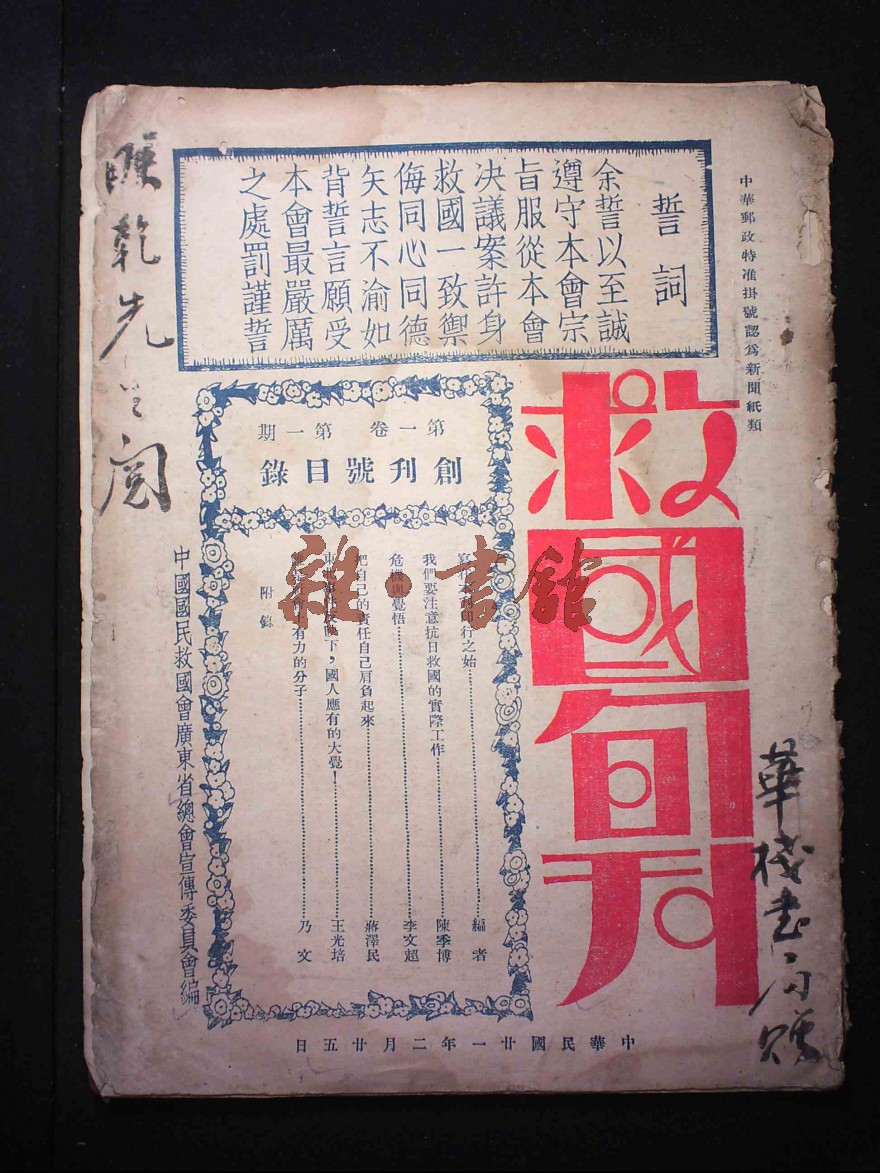 中華郵政特准掛號認爲新聞紙類
誓詞
余誓以至誠
遵守本會宗
旨服從本會
决議案許身
救國一致禦
侮同心同德
矢志不渝如
背誓言願受
本會最嚴厲
之處罰謹誓
救國旬刊
第一卷 第一期
創刊號目錄
印行之始 編者
我們要注意抗日救國的實際工作 陳季博
危機與覺悟 李文超
把自己的責任自己肩負起來 蔣澤民
下，國人應有的大覺！ 王光培
有力的分子 乃文
附錄
中國國民救國會廣東省總會宣傳委員會編
中華民國廿一年二月廿五日
乾先生閱
華棧書局贈
雜·書館